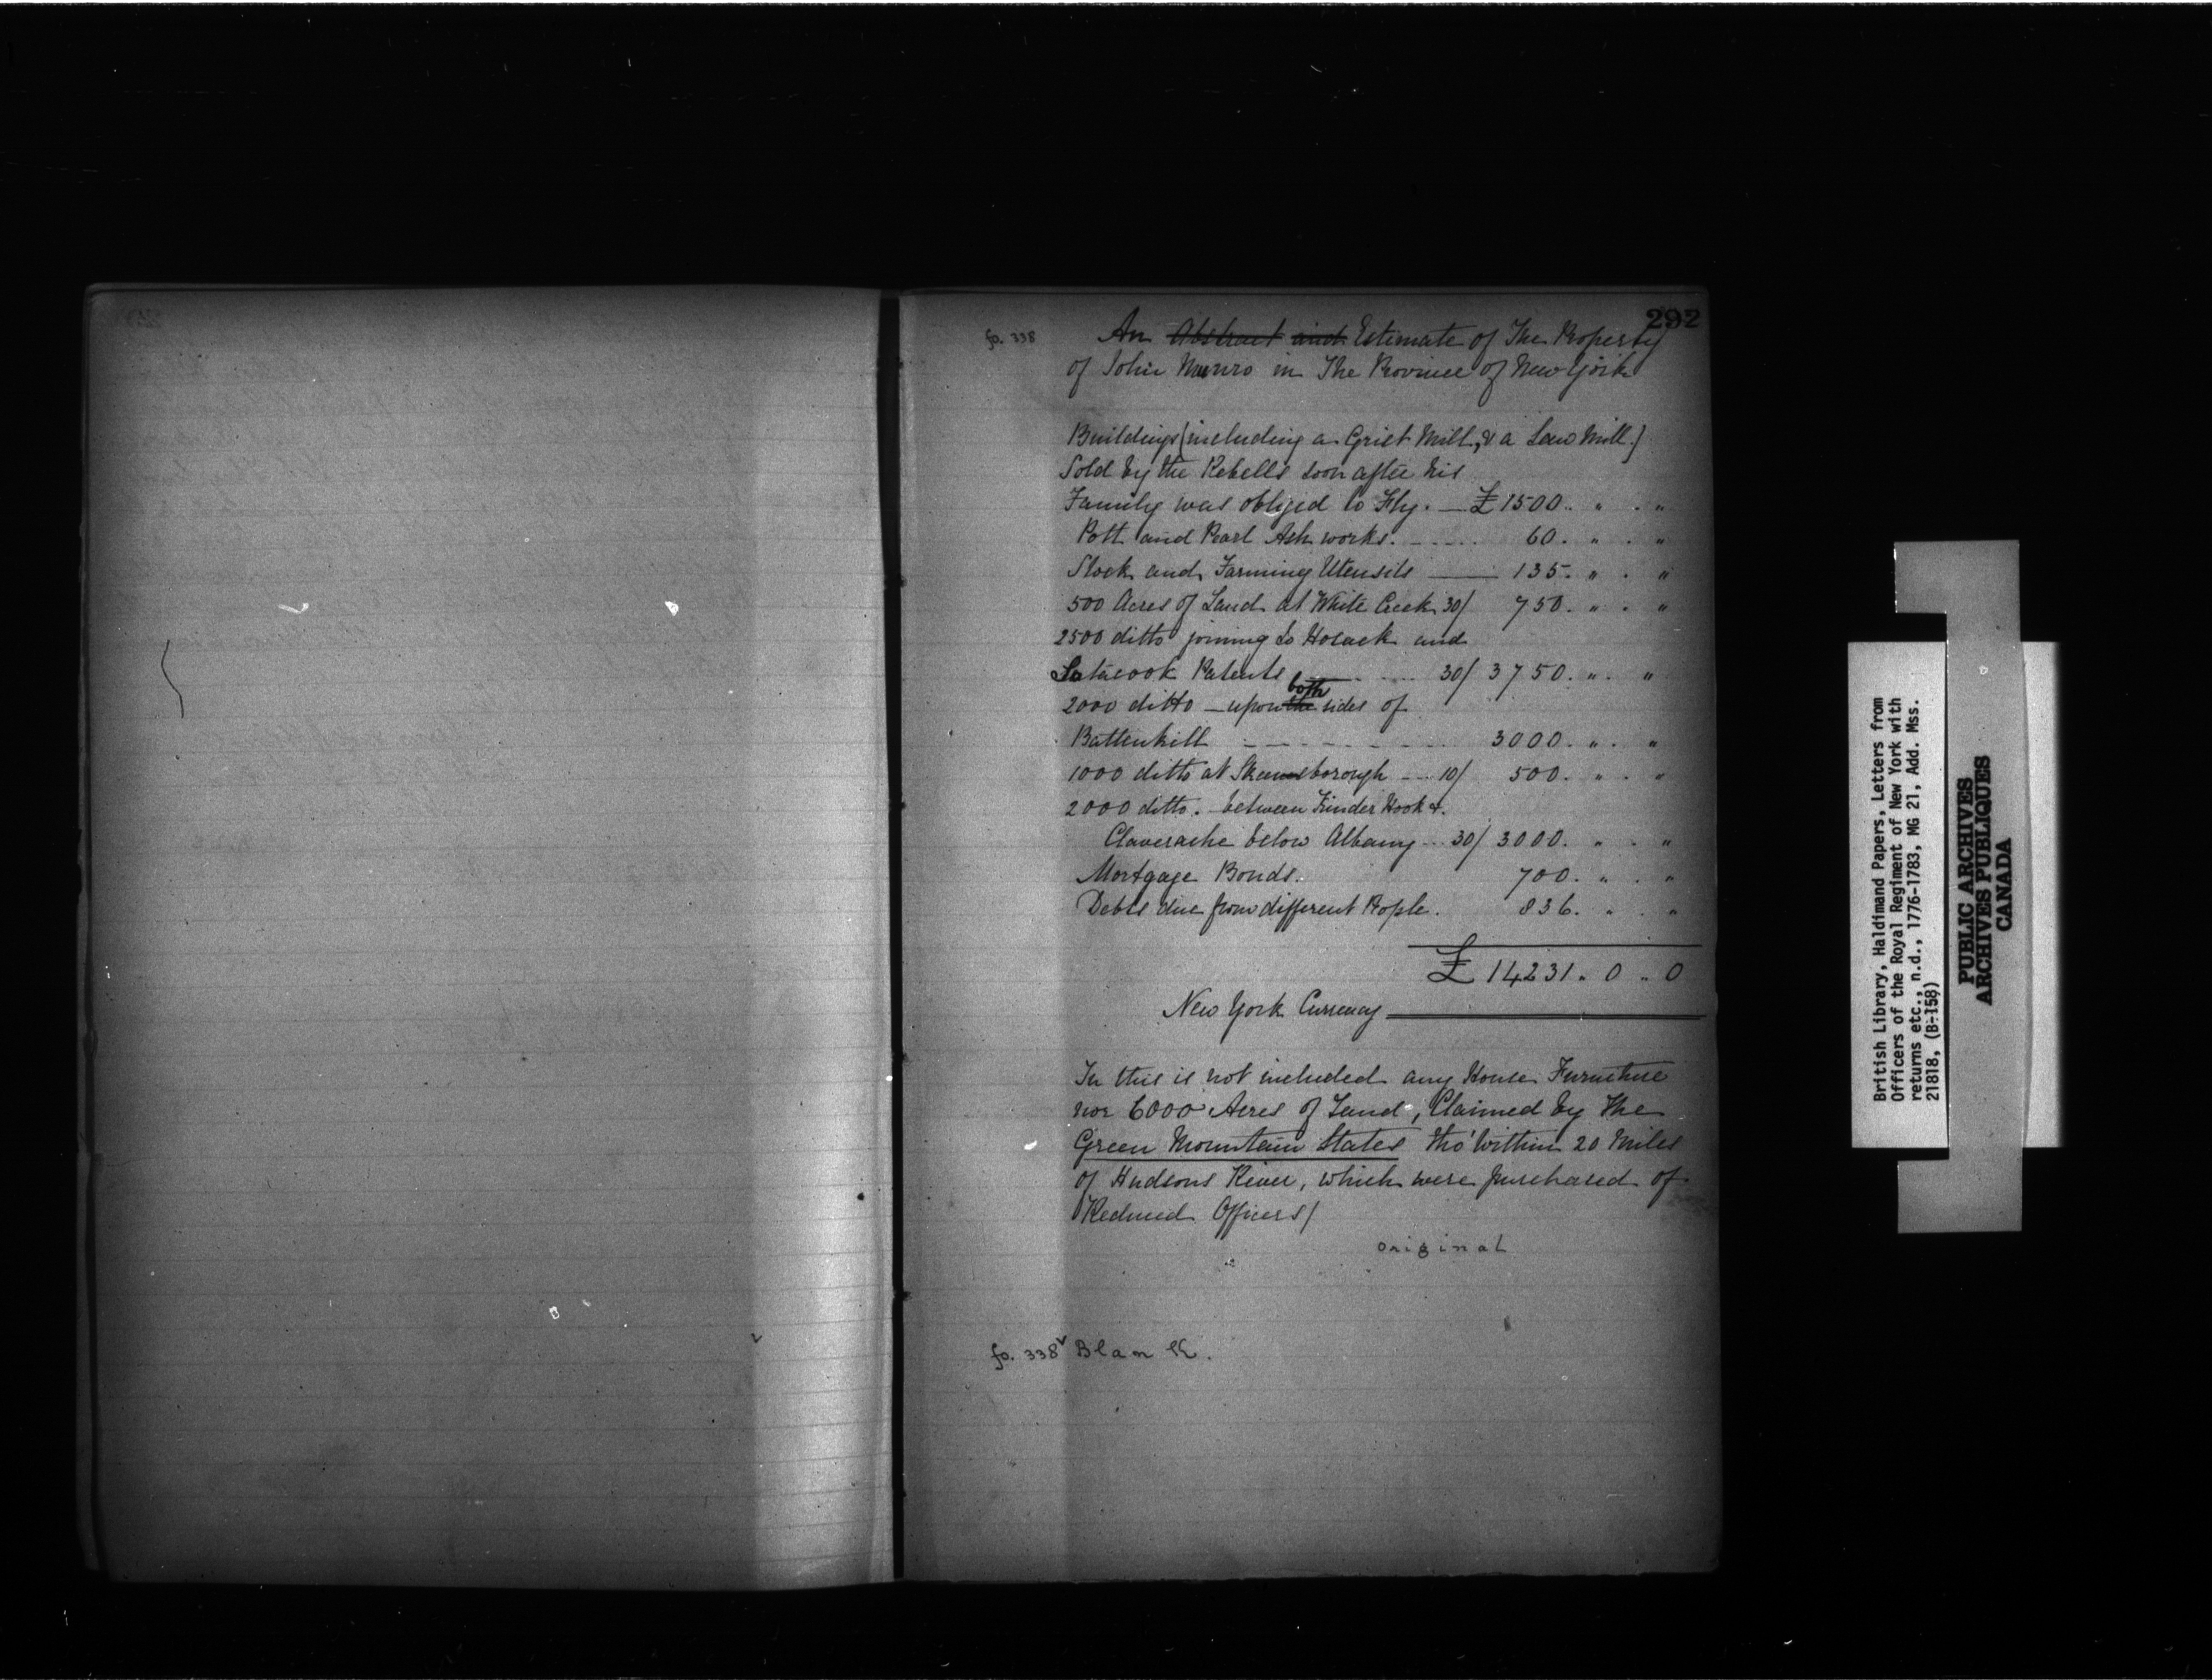 292
fo. 338
An Abstract and Estimate of The Property
of John Munro in The Province of New York
Buildings (including a Grist Mill, & a Saw Mill.)
Sold by the Rebells soon after his
Family was obliged to Fly. — £ 1500. " . "
Pott and Pearl Ash works. ..... 60. " . "
Stock and Farming Utensils — 135. " . "
500 Acres of Land at White Creek 30/ 750. " . "
2500 ditto joining to Hosack and
Satacook Patents ..... 30/ 3750. " . "
2000 ditto — upon the both sides of
Battenkill - - - - - - - 3000. " . "
1000 ditto at Skeensborough — 10/ 500. " . "
2000 ditto. – between Kinder Hook &.
Claverache below Albany .. 30/ 3000. " . "
Mortgage Bonds. 700. " . "
Debts due from different People. 836. " . "
£ 14231. 0 .. 0
New York Currency
In this is not included any House Furniture
nor 6000 Acres of Land, Claimed by The
Green Mountain States tho' within 20 Miles
of Hudsons River, which were purchased of
Reduced Officers/
original
fo. 338v Blank.
British Library, Haldimand Papers, Letters from
Officers of the Royal Regiment of New York with
returns etc., n.d., 1776-1783, MG 21, Add. Mss.
21818, (B-158)
PUBLIC ARCHIVES
ARCHIVES PUBLIQUES
CANADA